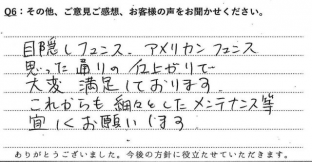 Q6：その他、ご意見ご感想、お客様の声をお聞かせください。
目隠しフェンス、アメリカンフェンス
思った通りの仕上がりで
大変満足しております。
これからも細々としたメンテナンス等
宜しくお願いします。
ありがとうございました。今後の方針に役立たせていただきます。